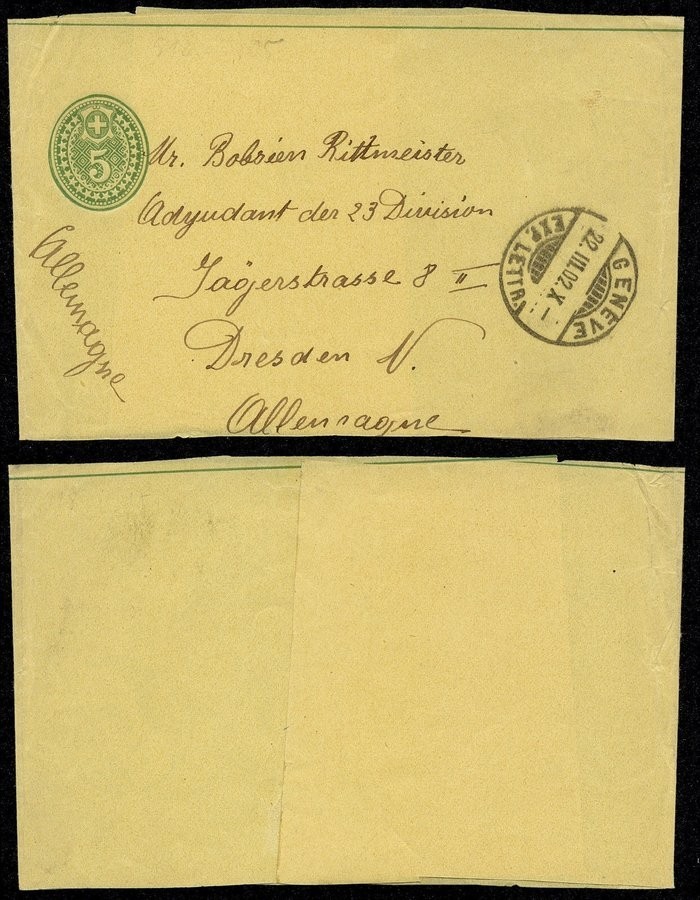 5
Mr. Bobsien Rittmeister
Adyudant der 23 Division
Jägerstrasse 8 II
Dresden N.
Allemagne
Allemagne
GENÈVE
22.III.02.X–
EXP. LETTR.